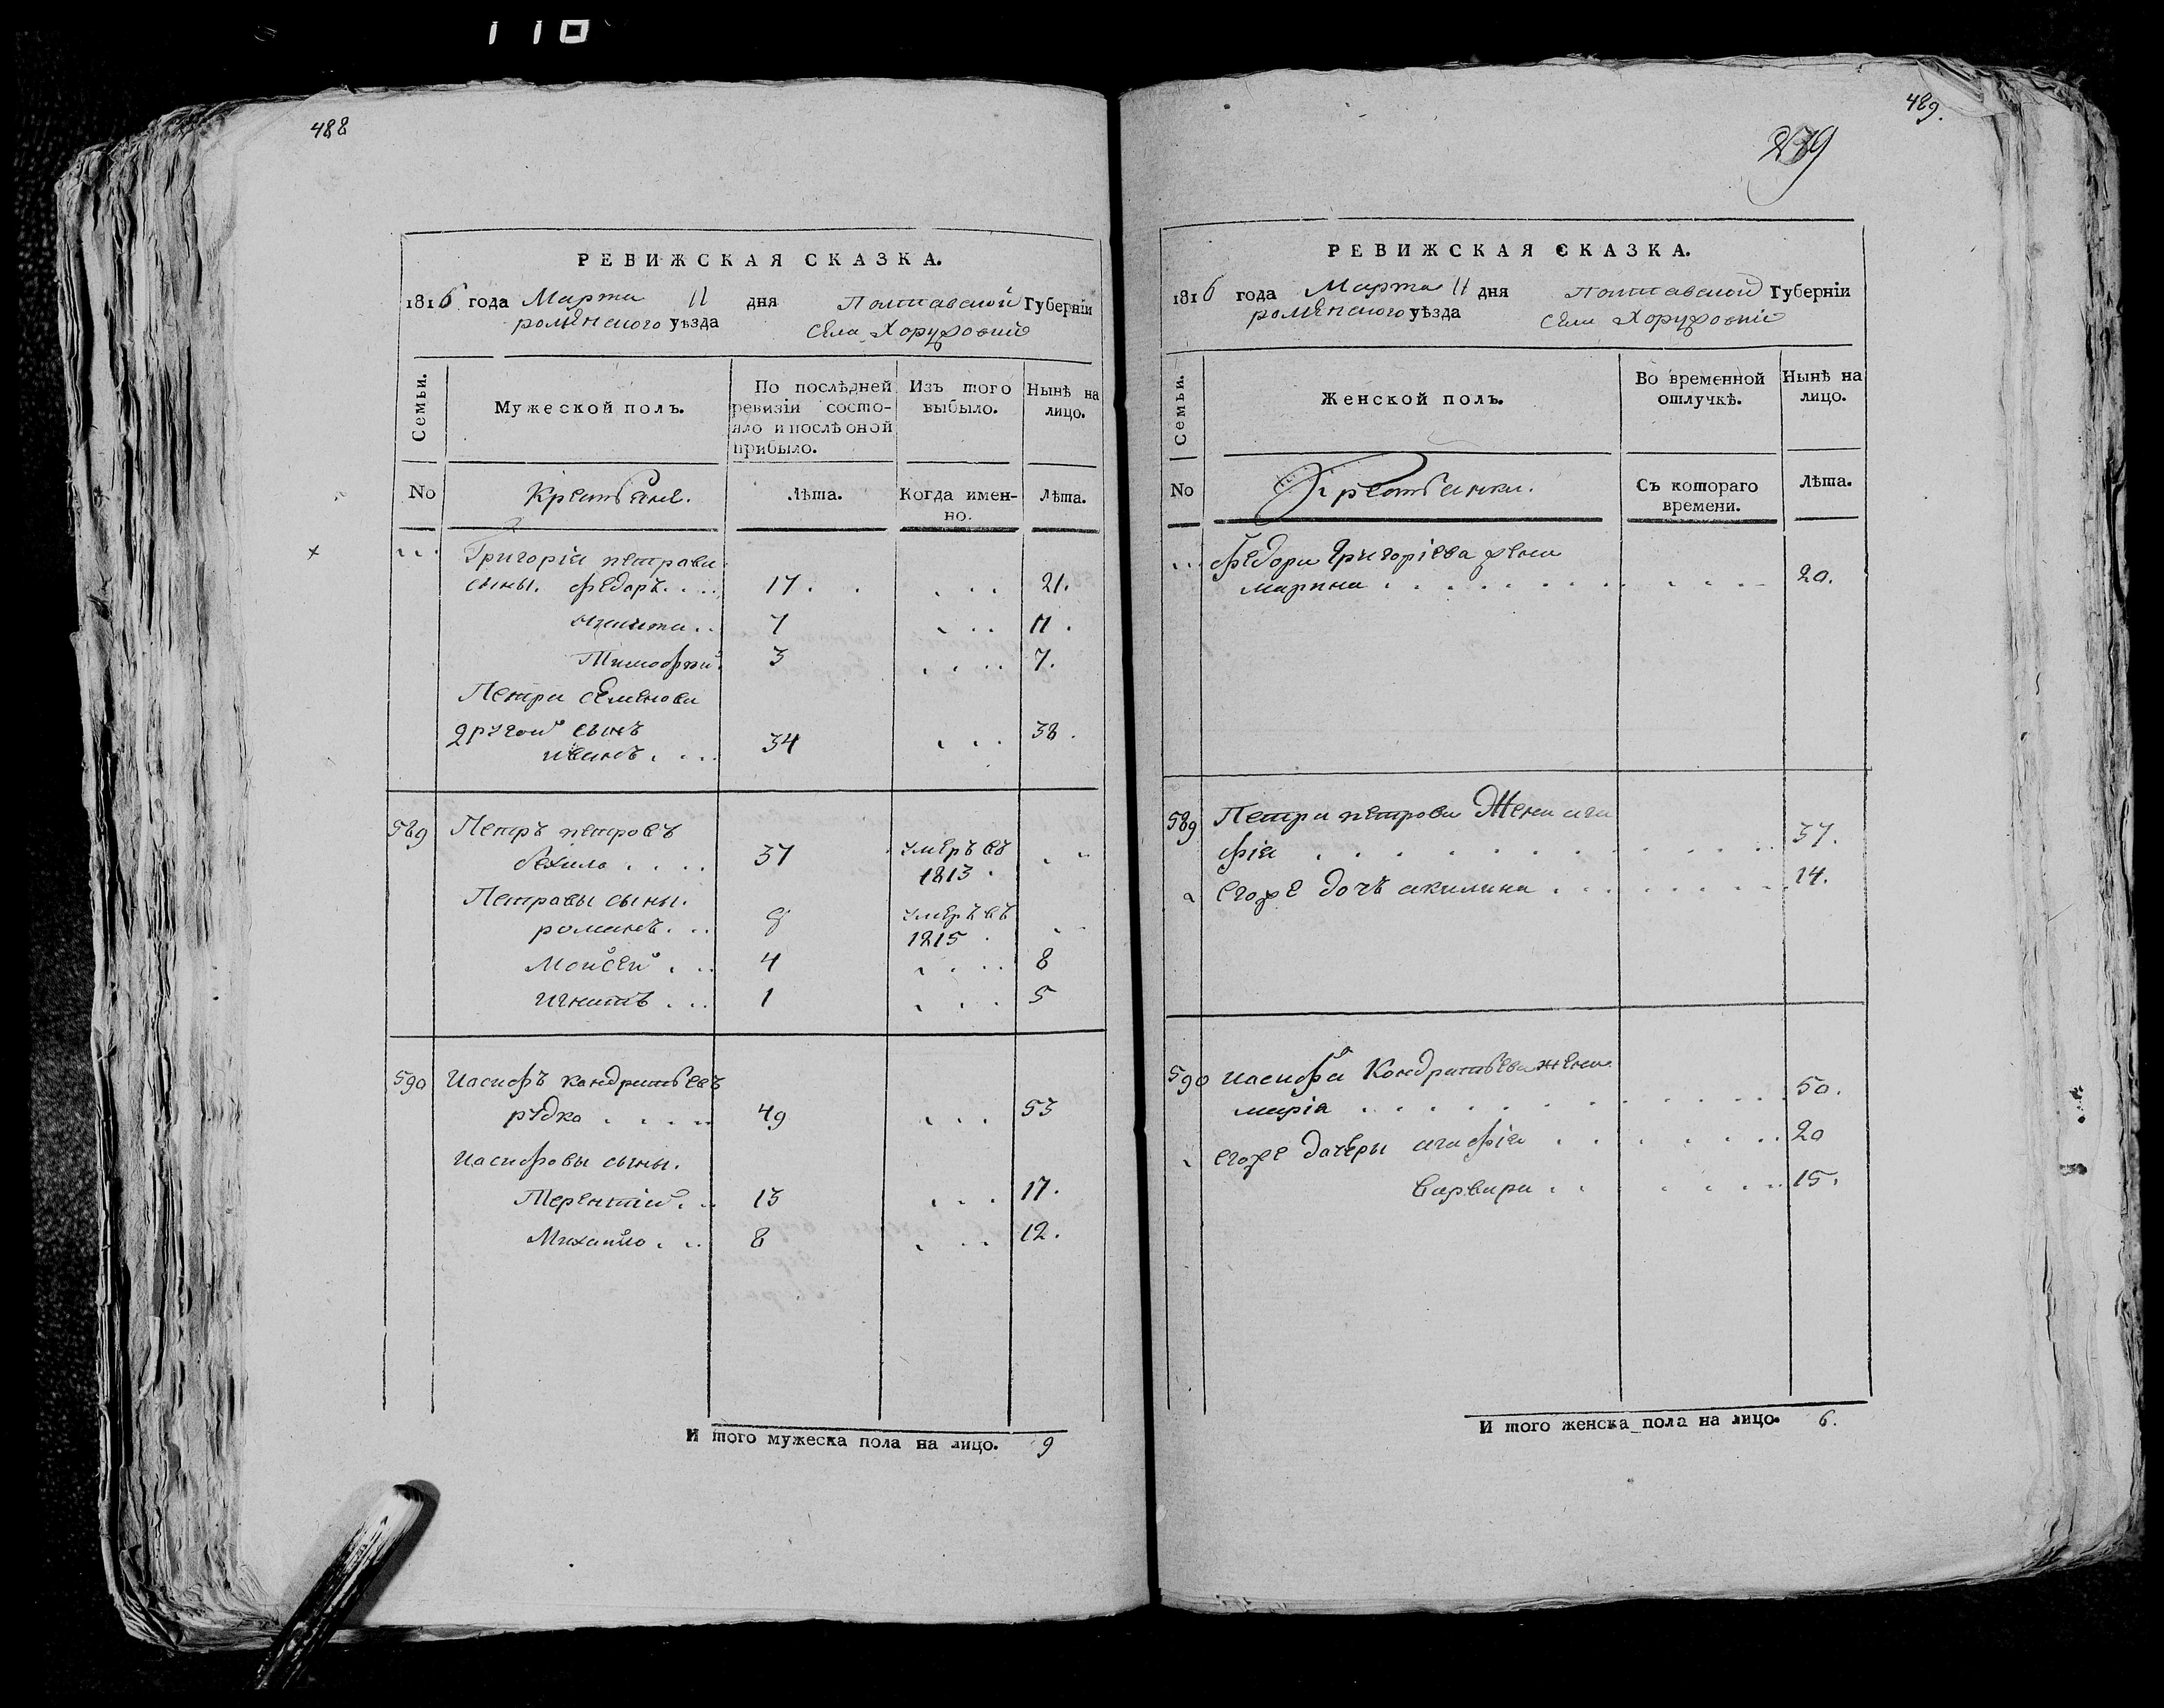 110
488
РЕВИЖСКАЯ СКАЗКА.
1816 года Марта 11 дня Полтавской Губерніи
роменского уѣзда села Хоружовки
Семьи.
Мужеской полъ.
По послѣдней ревизіи состояло и послѣ оной прибыло.
Изъ того выбыло.
Нынѣ на лицо.
No
Крестьяне.
Лѣта.
Когда именно.
Лѣта.
Григорія петрова
сыны. федоръ. 17. 21.
7 11.
Тимофей 3 7.
Петра Семенова
другой сынъ
иванъ. 34 38.
589 Петръ петровъ
37 умеръ въ 1813.
Петровы сыны.
романъ. 9 умеръ въ 1815.
Моисей 4 8
игнатъ 1 5
590 Иосифъ кондратьевъ
рѣдка 49 53
Иосифовы сыны.
Терентій 13 17.
Михайло 8 12.
И того мужеска пола на лицо. 9
489.
239
РЕВИЖСКАЯ СКАЗКА.
1816 года Марта 11 дня Полтавской Губерніи
роменского уѣзда села Хоружовки
Семьи.
Женской полъ.
Во временной отлучкѣ.
Нынѣ на лицо.
No
Крестьянки.
Съ котораго времени.
Лѣта.
федора Григоріева жена
марина 20.
589 Петра петрова Жена ага
фія 37.
егоже дочь акилина 14.
590 иосифа Кондратьева жена
марія 50.
егоже дочери агафія 20
варвара 15.
И того женска пола на лицо. 6.